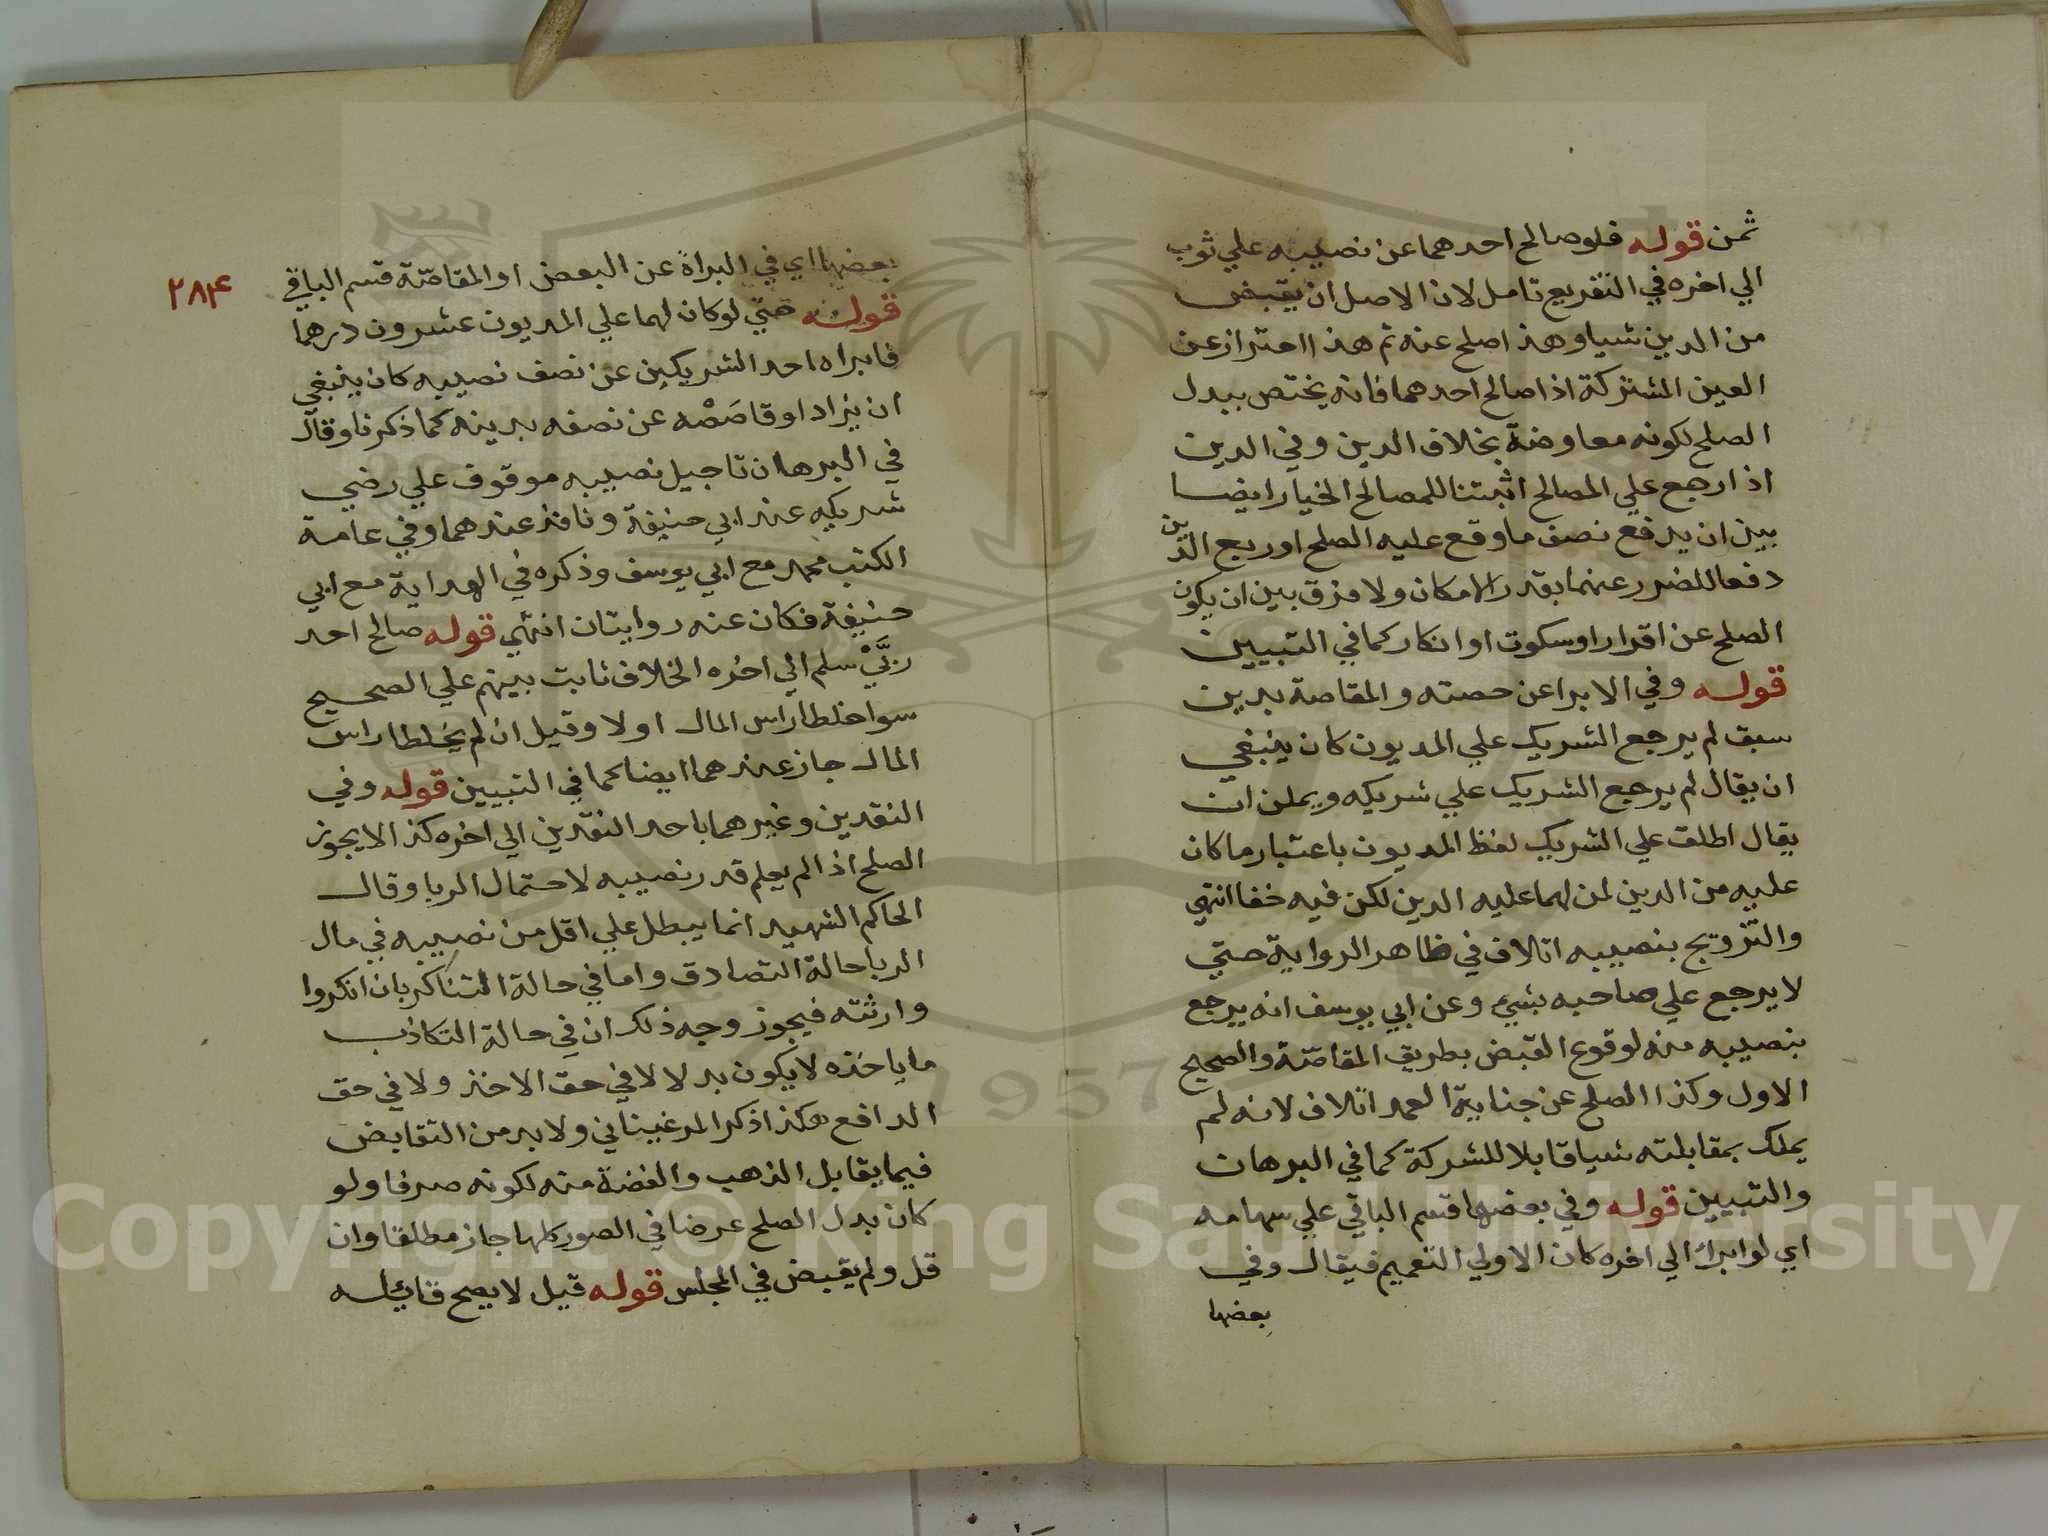 ثمن قوله فلو صالح احدهما عن نصيبه علي ثوب
الي اخره في التفريع تامل لان الاصل ان يقبض
من الدين شيا وهذ اصلح عنه ثم هذا احتراز عن
العين المشتركة اذا صالح احدهما فانه يختص ببدل
الصلح لكونه معاوضة بخلاف الدين وفي الدين
اذا رجع علي المصالح اثبتنا للمصالح الخيار ايضا
بين ان يدفع نصف ما وقع عليه الصلح او ربع الدين
دفعا للضرر عنهما بقدر الامكان ولا فرق بين ان يكون
الصلح عن اقرار او سكوت او انكار كما في التبيين
قوله وفي الابرا عن حصته والمقاصة بدين
سبق لم يرجع الشريك علي المديون كان ينبغي
ان يقال لم يرجع الشريك علي شريكه ويمكن ان
يقال اطلق علي الشريك لفظ المديون باعتبار ما كان
عليه من الدين لمن لهما عليه الدين لكن فيه خفا انتهي
والتزويج بنصيبه اتلاف في ظاهر الرواية حتي
لا يرجع علي صاحبه بشيء وعن ابي يوسف انه يرجع
بنصيبه منه لوقوع القبض بطريق المقاصّة والصحيح
الاول وكذا الصلح عن جناية العمد اتلاف لانه لم
يملك بمقابلته شيا قابلا للشركة كما في البرهان
والتبيين قوله وفي بعضها قسم الباقي علي سهامه
اي لو ابرا الي اخره كان الاولي التعميم فيقال وفي
بعضها
٢٨٤
بعضها اي في البراة عن البعض او المقاصّة قسم الباقي
قوله حتي لو كان لهما علي المديون عشرون درهما
فابراه احد الشريكين عن نصف نصيبه كان ينبغي
ان يزاد او قاصَصْه عن نصفه بدينه كما ذكرنا وقال
في البرهان تاجيل نصيبه موقوف علي رضي
شريكه عند ابي حنيفة ونافذ عندهما وفي عامة
الكتب محمد مع ابي يوسف وذكره في الهداية مع ابي
حنيفة فكان عنه روايتان انتهي قوله صالح احد
ربَّيْ سلم الي اخره الخلاف ثابت بينهم علي الصحيح
سوا خلطا راس المال اولا وقيل ان لم يخلطا راس
المال جاز عندهما ايضا كما في التبيين قوله وفي
النقدين وغيرهما باحد النقدين الي اخره كذ الا يجوز
الصلح اذا لم يعلم قدر نصيبه لاحتمال الربا وقال
الحاكم الشهيد انما يبطل علي اقل من نصيبه في مال
الربا حالة التصادق واما في حالة التناكر بان انكروا
وارثته فيجوز وجه ذلك ان في حالة التكاذب
ما ياخذه لا يكون بدلا لا في حق الاخذ ولا في حق
الدافع هكذا ذكر المرغيناني ولا بد من التقابض
فيما يقابل الذهب والفضة منه لكونه صرفا ولو
كان بدل الصلح عرضا في الصور كلها جاز مطلقا وان
قل ولم يقبض في المجلس قوله قيل لا يصح قائله
Copyright © King Saud University
1957